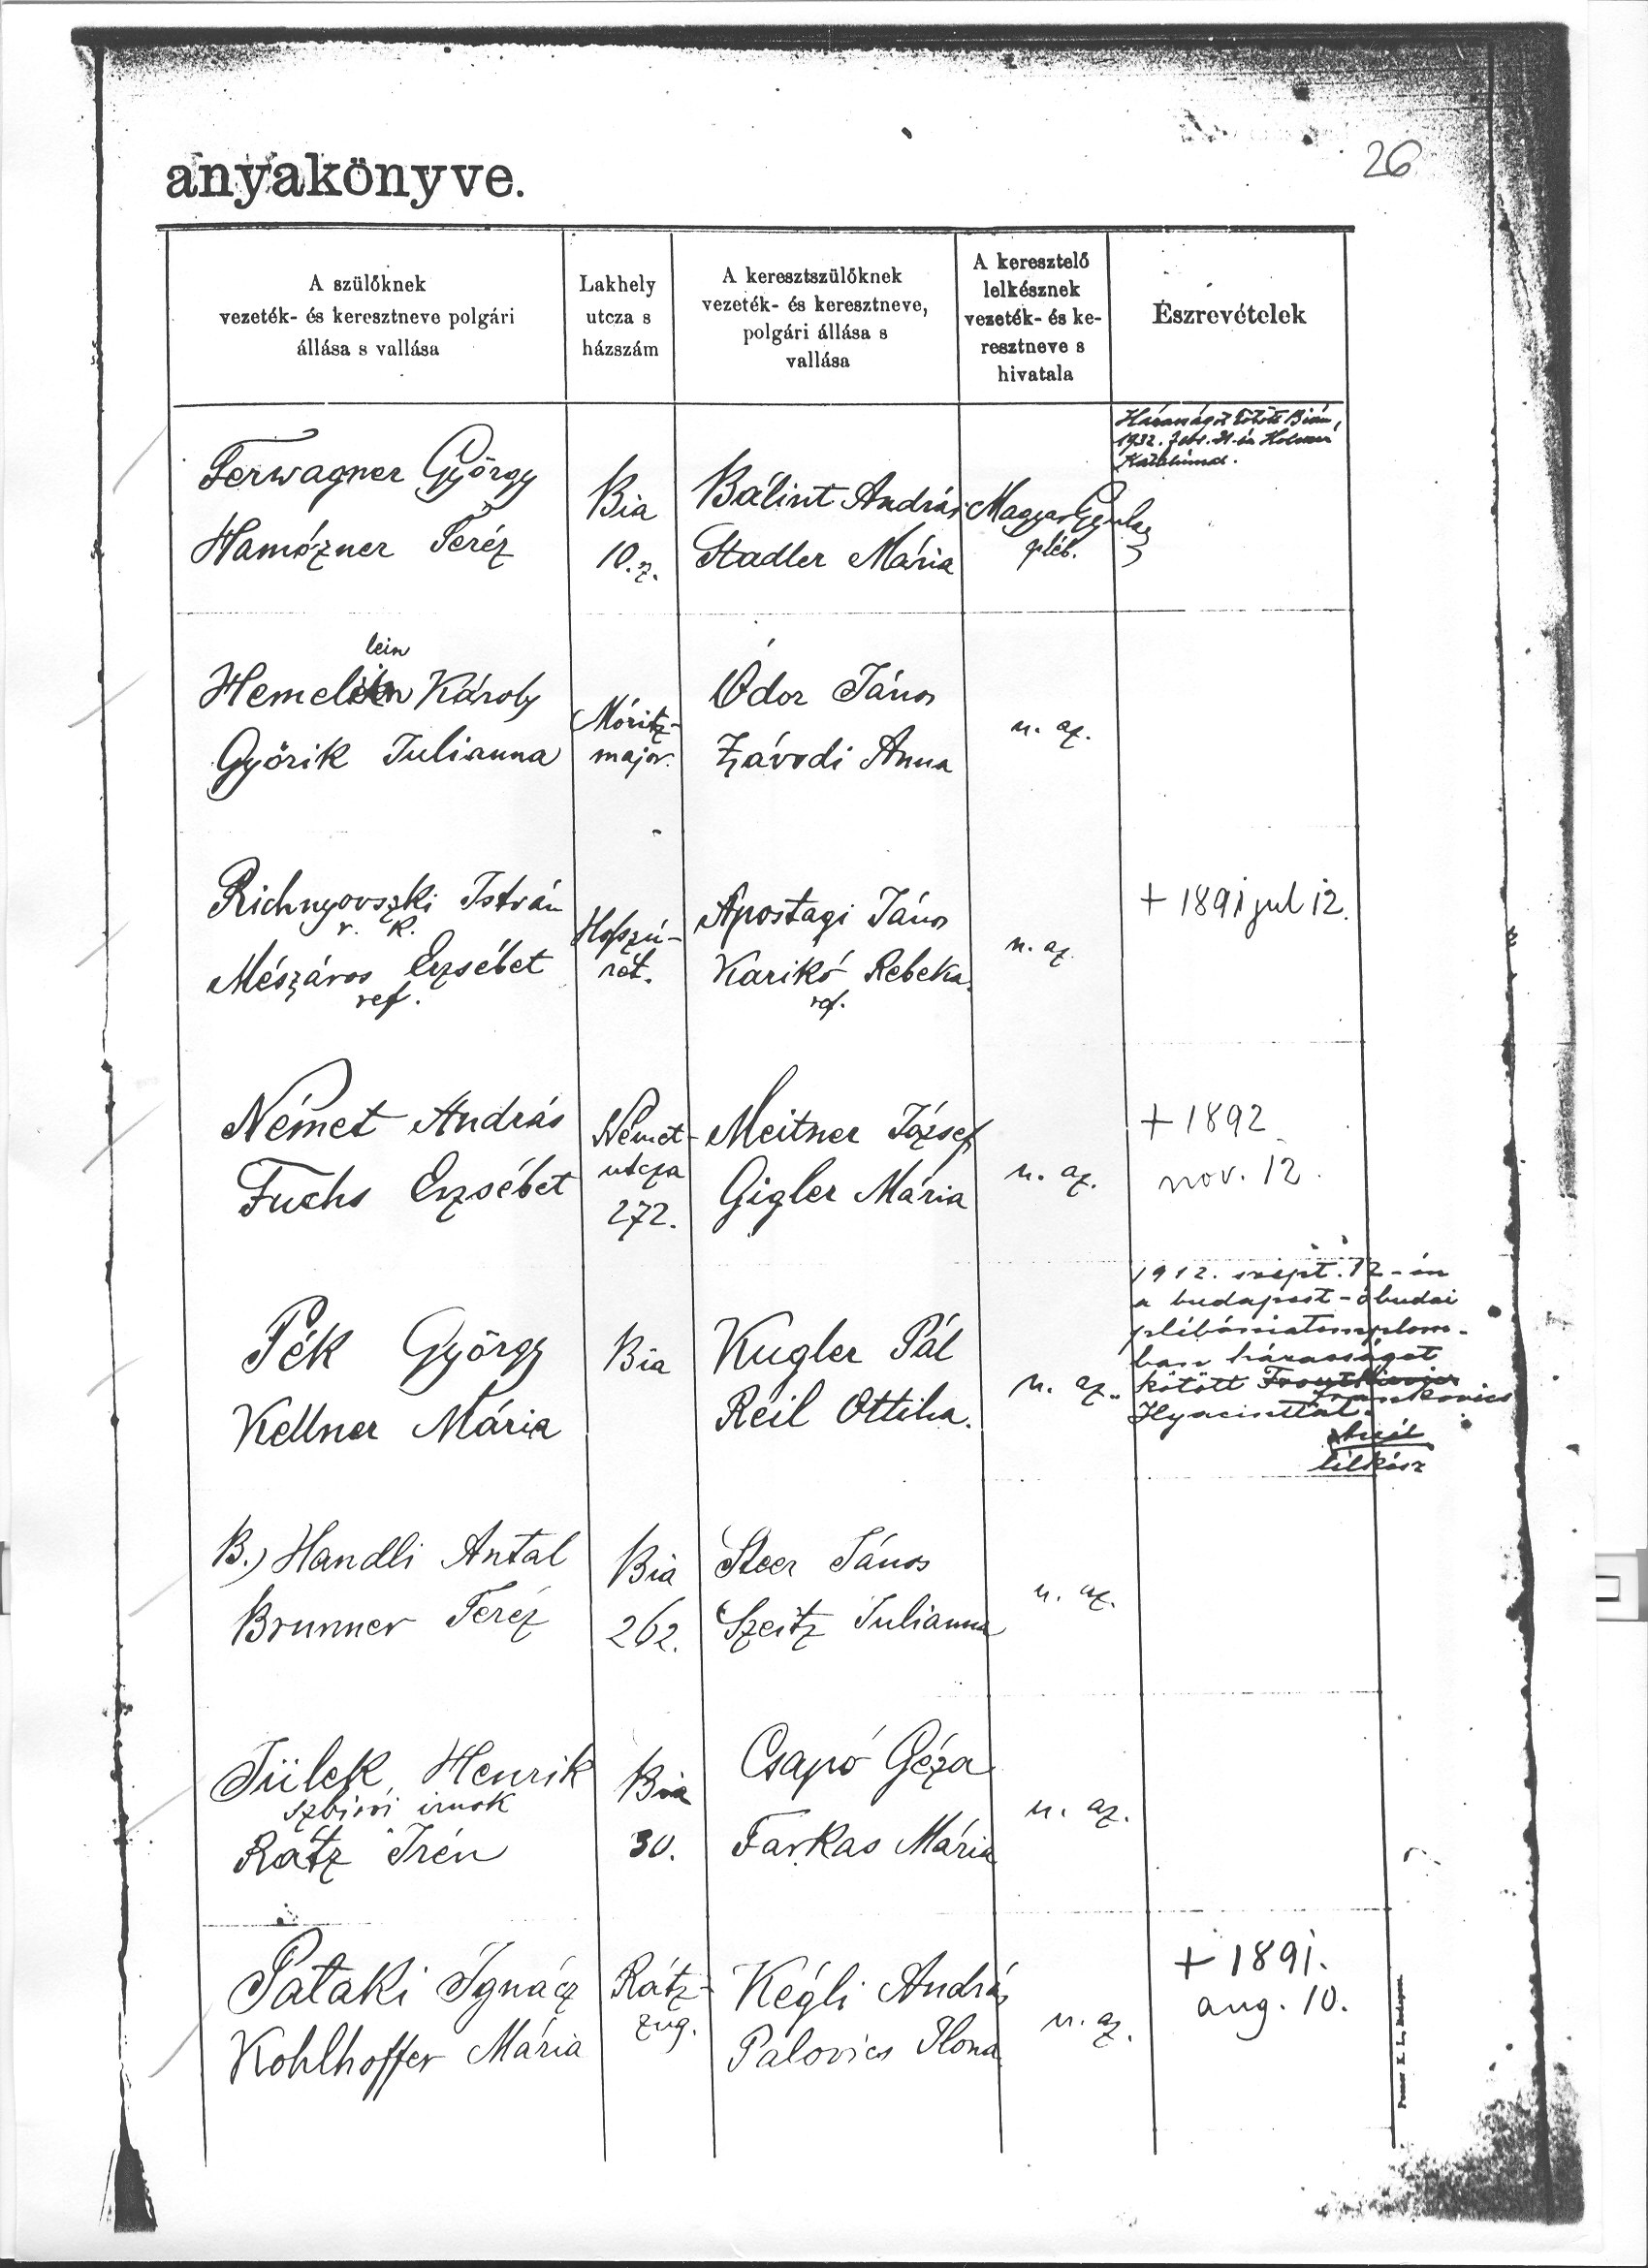 anyakönyve.
26
A szülőknek
vezeték- és keresztneve polgári
állása s vallása
Lakhely
utcza s
házszám
A keresztszülőknek
vezeték- és keresztneve,
polgári állása s
vallása
A keresztelő
lelkésznek
vezeték- és ke-
resztneve s
hivatala
Észrevételek
Ferwagner György
Hamózner Teréz
Bia
10. z.
Bálint András
Stadler Mária
Magyar Gyula
pléb.
Házasságot kötött Bián,
1932. febr.
lein
Hemel Károly
Győrik Julianna
Móritz-
major.
Ódor János
Závodi Anna
u. az.
Richnyovszki István
r. k.
Mészáros Erzsébet
ref.
rét.
Apostagi János
Karikó Rebeka
ref.
u. az.
+ 1891 jul 12.
Német András
Fuchs Erzsébet
Német-
utcza
272.
Meitner József
Gigler Mária
u. az.
+ 1892
nov. 12.
Pék György
Kellner Mária
Bia
Kugler Pál
Reil Ottilia.
u. az.
1912. szept. 12-én
a budapest-óbudai
plébániatemplom-
ban házasságot
kötött
Frankovics
Hyacinttal.
lelkész
B.) Handli Antal
Brunner Teréz
Bia
262.
Steer János
Szeitz Julianna
u. az.
Jülek Henrik
szbirói irnok
Rátz Irén
Bia
30.
Csapó Géza
Farkas Mária
u. az.
Pataki Ignácz
Kohlhoffer Mária
Rátz-
zug.
Kégli András
Palovics Ilona
u. az.
+ 1891.
aug. 10.